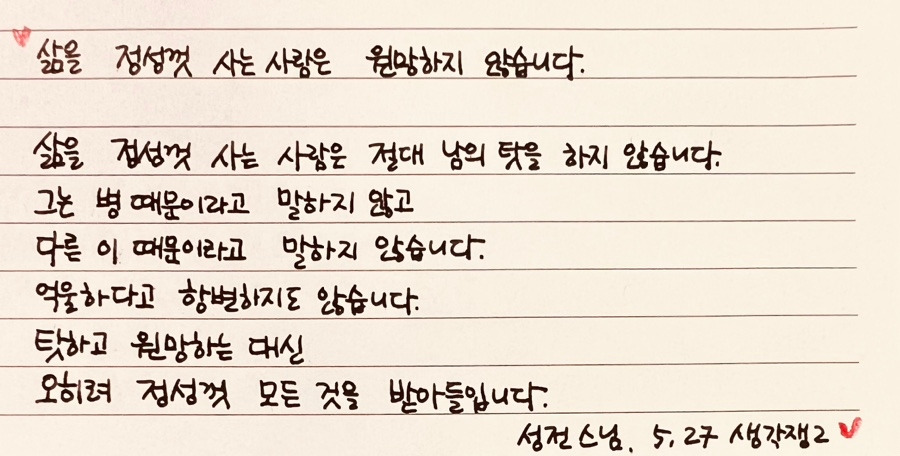 삶을 정성껏 사는 사람은 원망하지 않습니다.
삶을 정성껏 사는 사람은 절대 남의 탓을 하지 않습니다.
그는 병 때문이라고 말하지 않고
다른 이 때문이라고 말하지 않습니다.
억울하다고 항변하지도 않습니다.
탓하고 원망하는 대신
오히려 정성껏 모든 것을 받아들입니다.
성전스님. 5. 27 생각쟁2